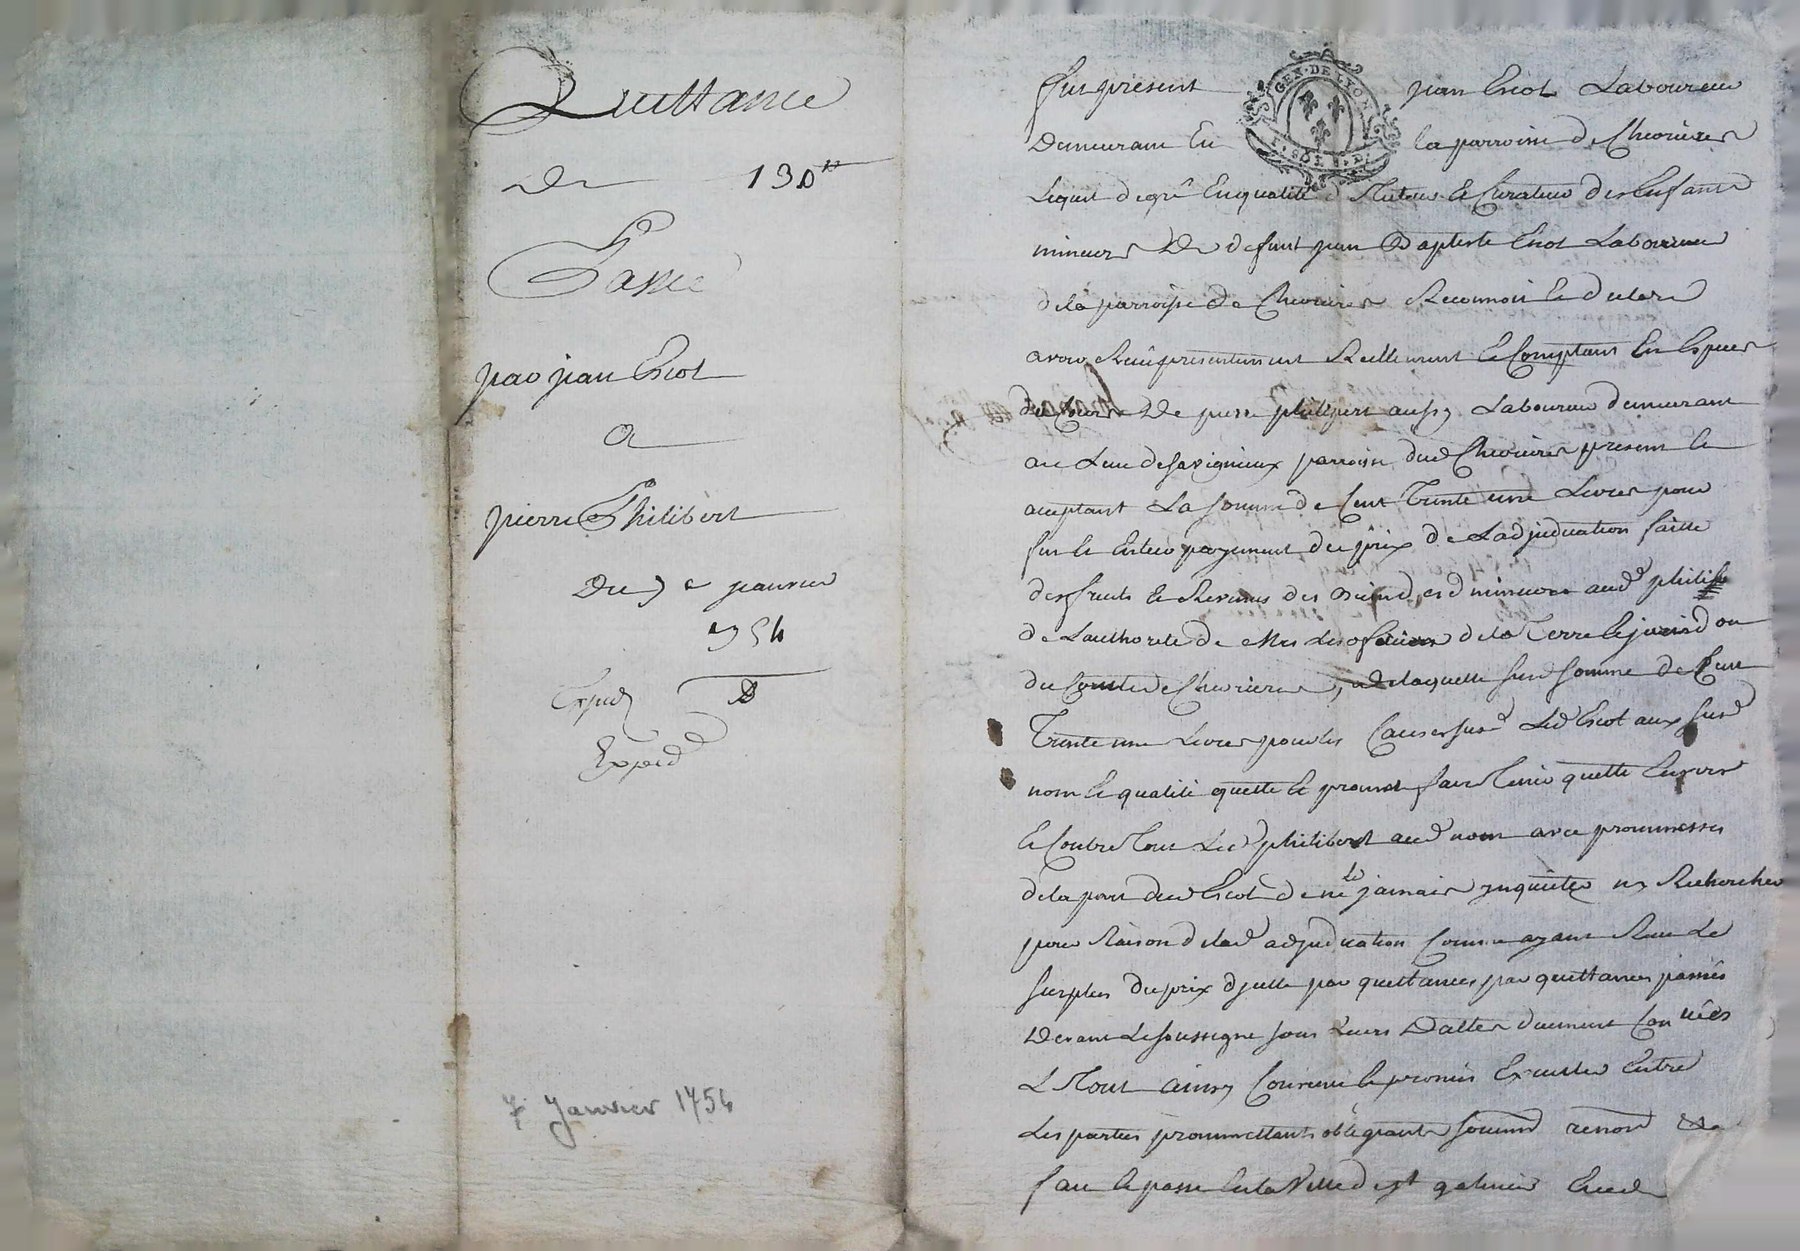 Quittance
De 130 tt
Passé
par jean Escot
a
pierre Philibert
Du 7e janvier
1754
Expedd
7 Janvier 1754
GEN · DE LYON
Fut present jean Escot Laboureur
Demeurant En la parroisse de Chevrieres
Lequel de gré En qualité de Tuteur Et Curateur des Enfants
mineurs De deffunt jean Baptiste Escot Laboureur
de la parroisse de Chevrieres Reconnoit Et declare
avoir Receu presentement Reellement Et Comptant En Especes
de Cours De pierre philipert aussy Laboureur demeurant
au Lieu de Savignieux parroisse dud Chevrieres present Et
acceptant La somme de Cent Trente une Livres pour
fin Et Entier payement du prix de Ladjudication faitte
des fruits Et Revenus des Biens desd mineurs aud philib
de Lauthorité de Mrs Les officiers de la Terre Et jurisdon
du Comté de Chevrieres, de laquelle susd somme de Cent
Trente une Livres pour les Causes susd Led Escot aux susd
nom Et qualité quitte Et promet faire Tenir quitte Envers
Et Contre Tous Led philibert aud nom avec prommesses
de la part dud Escot de ne le jamais ynquieter ny Rechercher
pour Raison de lad adjudication Comme ayant Receu Le
surplus du prix dycelle par quittances par quittances passés
Devant Le soussigné sous Leurs Dattes duement Con uées
Le Tout ainsy Convenu Et promis Executer Entre
Les parties prommettants obligeants soumd renond &a
fait Et passé En la Ville de st galmier Etude